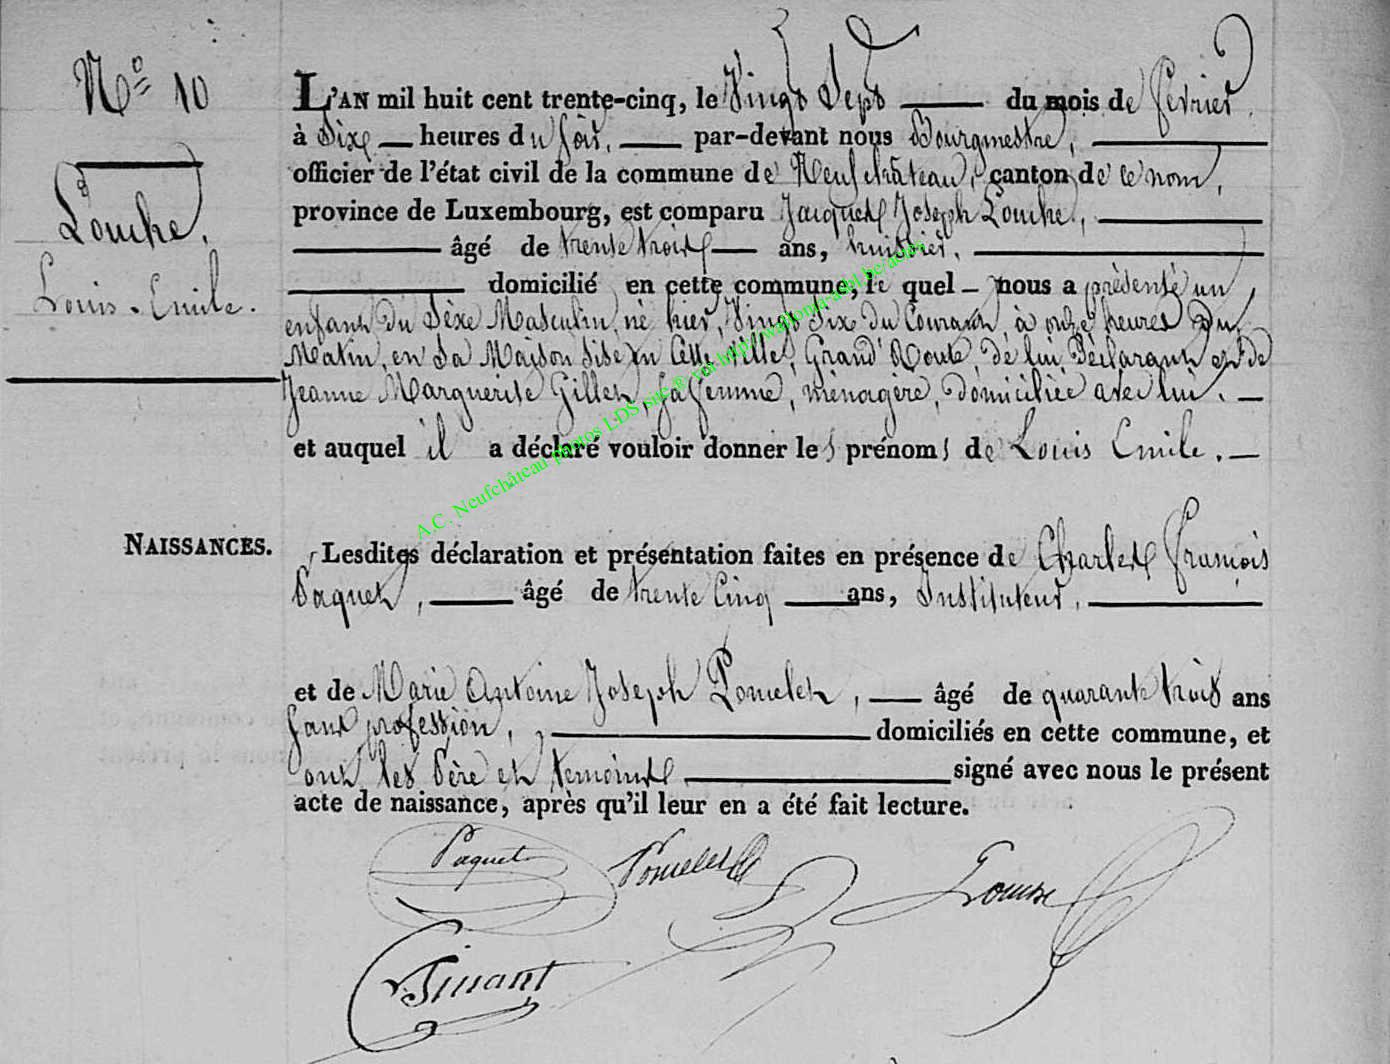 N° 10
L'AN mil huit cent trente-cinq, le Vingt Sept du mois de février
à Six heures du soir, par-devant nous Bourgmestre,
officier de l'état civil de la commune de Neufchâteau, canton de ce nom,
province de Luxembourg, est comparu Jacques Joseph Louche,
Louche,
Louis-Emile.
âgé de trente trois ans, huissier,
domicilié en cette commune, le quel nous a présenté un
enfant du Sèxe Masculin, né hier, Vingt Six du Courant, à onze heures du
Matin, en Sa Maison Sise en Cette Ville, Grand' Route, de lui Déclarant et de
Jeanne Marguerite Gillet, sa femme, ménagère, domiciliée avec lui.
et auquel il a déclaré vouloir donner les prénoms de Louis Emile.
A.C. Neufchâteau photos LDS suc ® vir http://wallonia-asbl.be/actes
NAISSANCES.
Lesdites déclaration et présentation faites en présence de Charles François
Paquet, âgé de trente Cinq ans, Instituteur,
et de Marie Antoine Joseph Pomelet, âgé de quarante trois ans
sans profession, domiciliés en cette commune, et
ont les Père et temoins signé avec nous le présent
acte de naissance, après qu'il leur en a été fait lecture.
Paquet
Louche